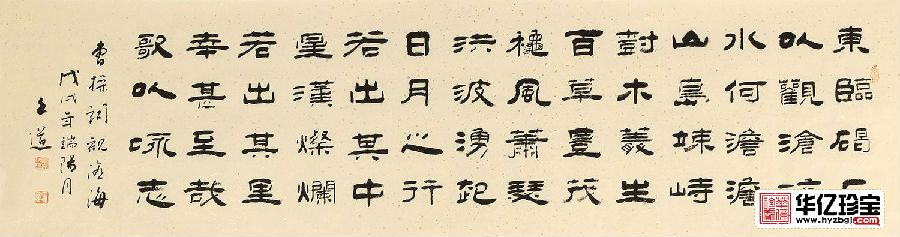 東臨碣石
以觀滄海
水何澹澹
山島竦峙
樹木叢生
百草豐茂
穐風蕭瑟
洪波湧起
日月之行
若出其中
星漢燦爛
若出其里
幸甚至哉
歌以咏志
曹操詞觀滄海
戊戌年端陽月
王道
华亿珍宝
www.hyzbgj.com